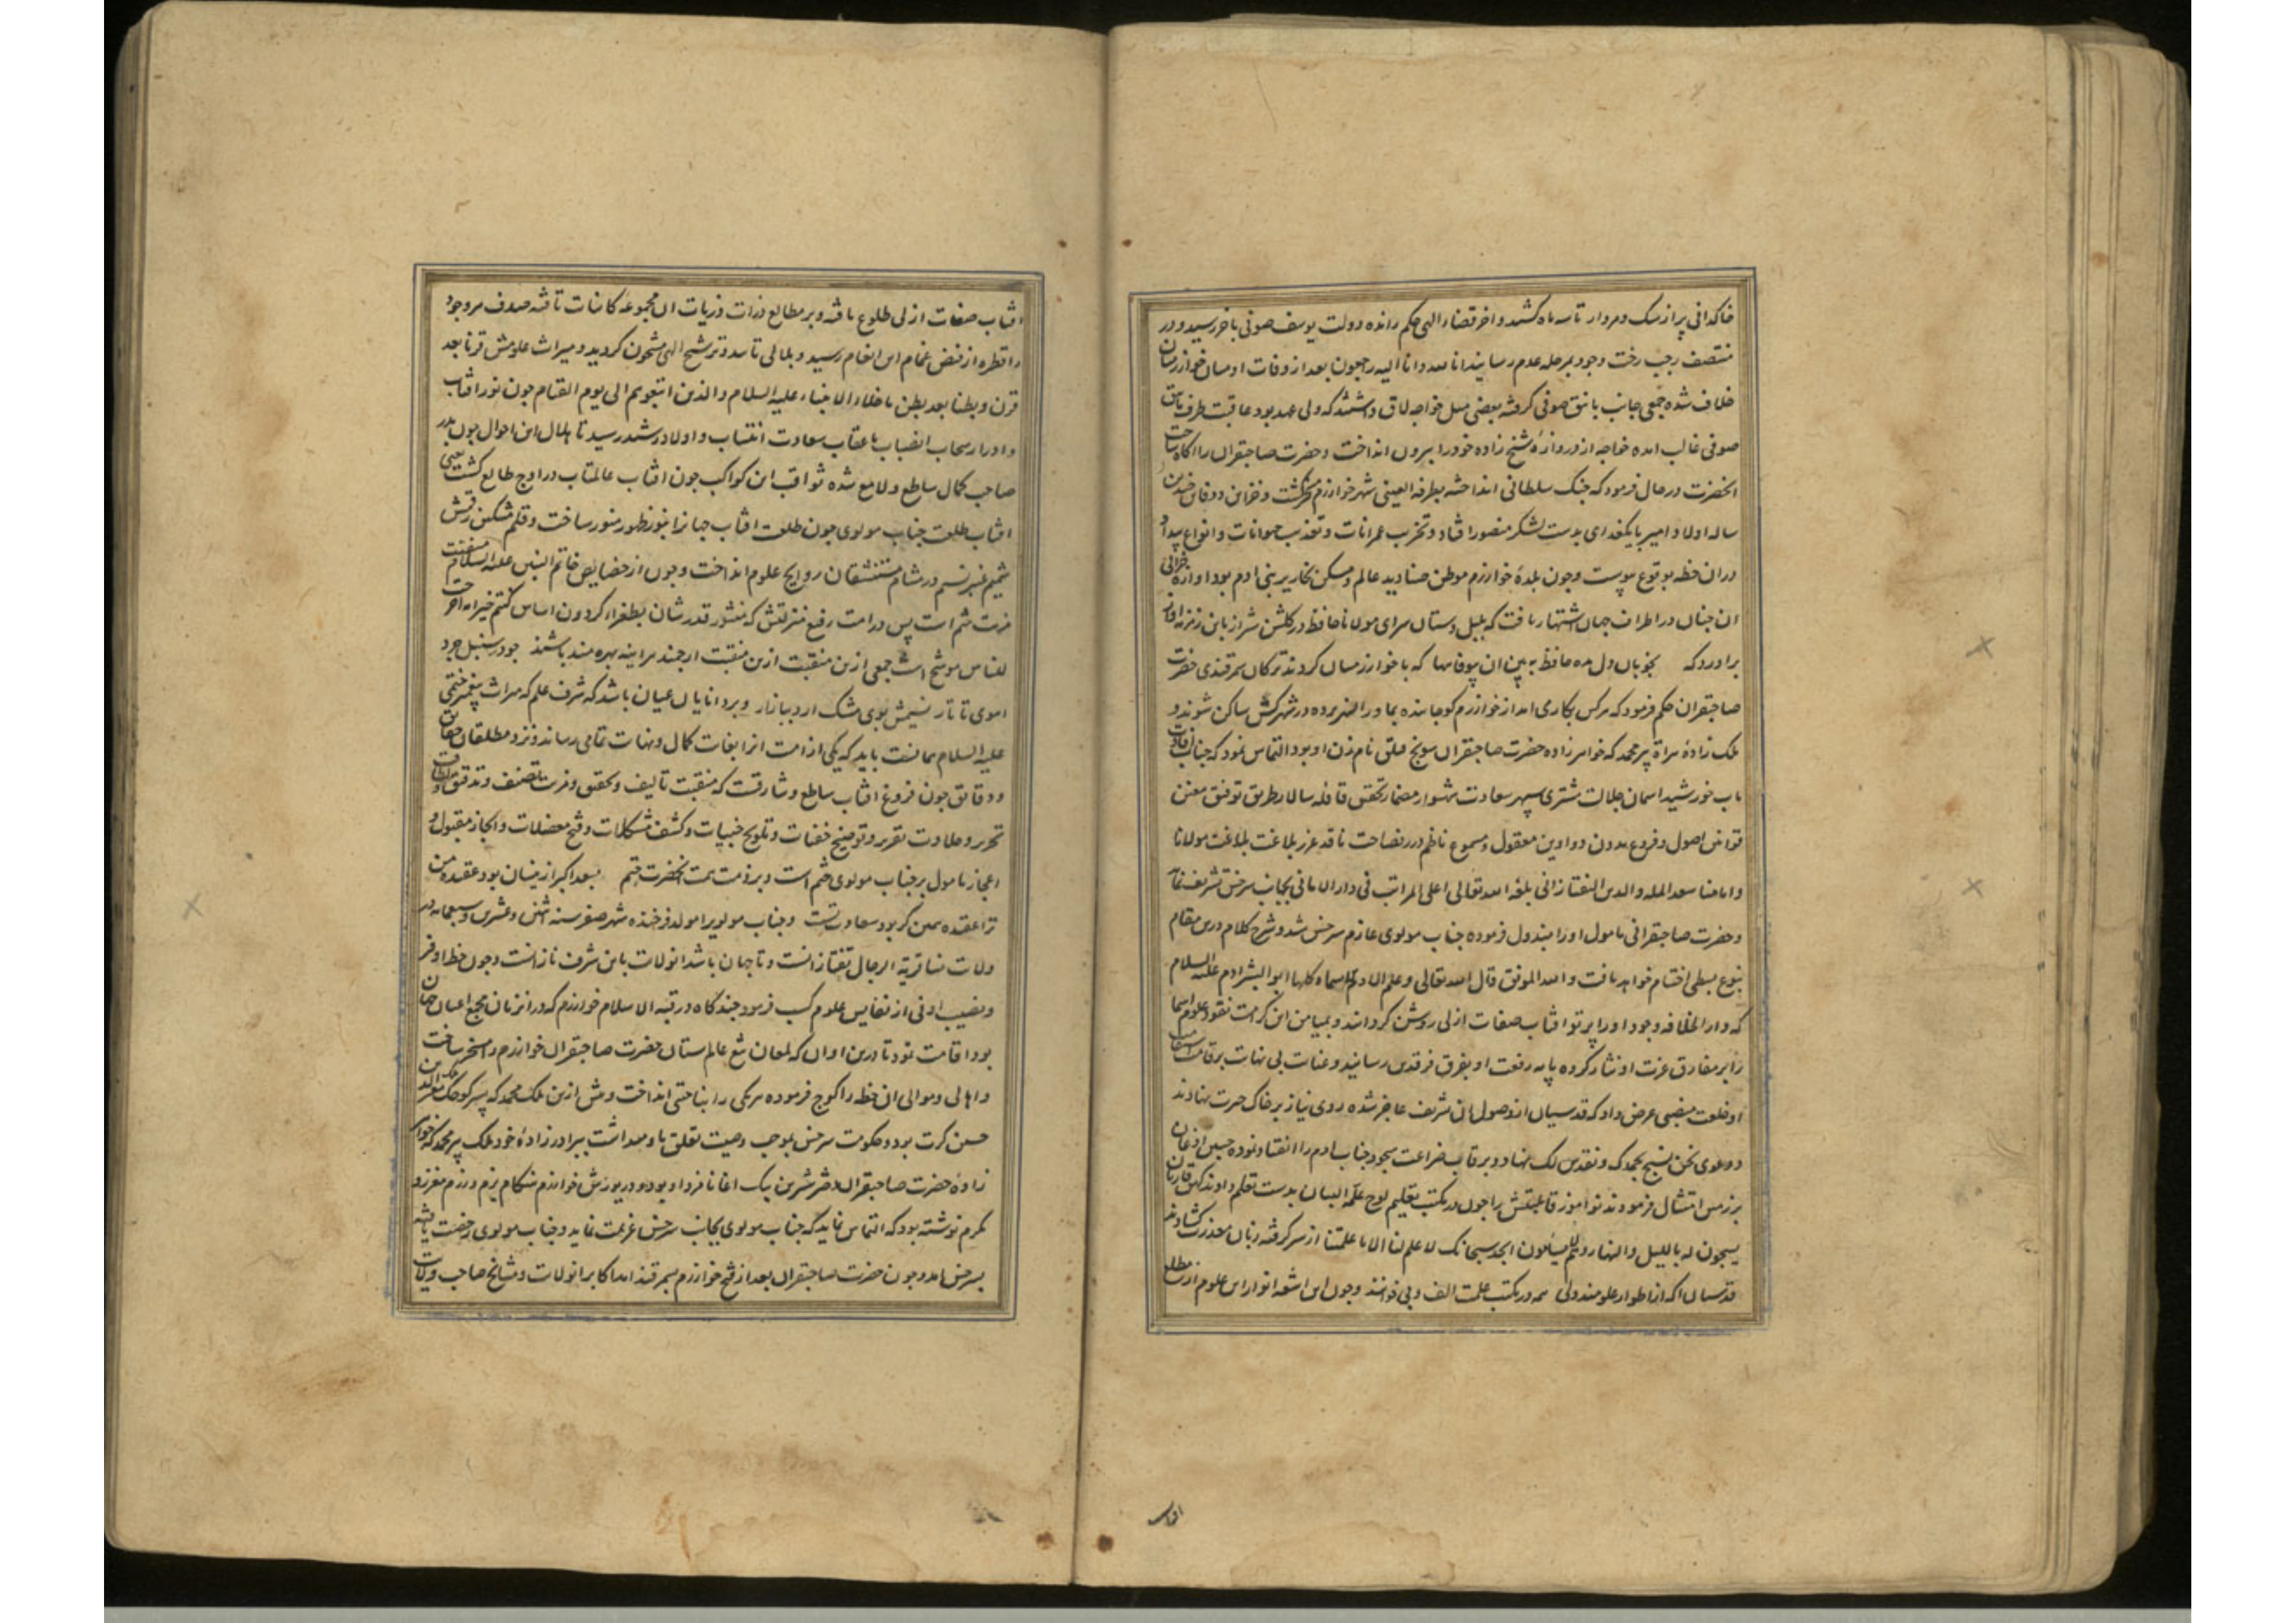 خاکدانی پر از سک و مردار تا سه ماه کشید و اخر قضاء الهی حکم رانده دولت یوسف صوفی باخر رسید و در
منتصف رجب رخت وجود بمرحله عدم رسانید انا لله و انا الیه راجعون بعد از وفات او میان خوارزمیان
خلاف شده جمعی جانب باتق صوفی کرفته بعضی میل خواجه لاق داشتند که ولی عهد بود عاقبت طرف باتق
صوفی غالب امده خواجه از دروازه شیخ زاده خود را بیرون انداخت و حضرت صاحبقران را اکاه ساخت
انحضرت در حال فرمود که جنک سلطانی انداخته بطرفه العینی شهر خوارزم مسخر کشت و خزاین و دفاین چندین
ساله اولاد امیر بایکغدای بدست لشکر منصور افتاد و تخریب عمرانات و تعذیب حیوانات و انواع بیداد
در ان خطه بوقوع پیوست و چون بلده خوارزم موطن صنادید عالم و مسکن نحاریر بنی ادم بود اوازه خرابی
ان چنان در اطراف جهان اشتهار یافت که بلبل دستان سرای مولانا حافظ در کلشن شیراز باین زمزمه اواز
براورد که بخوبان دل مده حافظ ببین ان بیوفایها که با خوارزمیان کردند ترکان سمرقندی حضرت
صاحبقران حکم فرمود که هرکس بکاری امد از خوارزم کوچانیده بماوراالنهر برده در شهر کش ساکن شوند و
ملک زاده هراة پیر محمد که خواهر زاده حضرت صاحبقران سونج قتلق نام زن او بود التماس نمود که جناب افادت
ماب خورشید اسمان جلالت مشتری سپهر سعادت شهسوار مضمار تحقیق قافله سالار طریق توفیق مقنن
قوانین اصول و فروع مدون دواوین معقول و مسموع ناظم درر فصاحت ناقد غرر بلاغت مولانا
و امامنا سعد المله والدین التفتازانی بلغه الله تعالی اعلی المراتب فی دار الامانی بجانب سرخس تشریف نماید
و حضرت صاحبقرانی مامول او را مبذول فرموده جناب مولوی عازم سرخس شد و شرح کلام درین مقام
بنوع بسطی اختتام خواهد یافت والله الموفق قال الله تعالی و علم ادم الاسماء کلها ابو البشر ادم علیه السلام
که دار الخلافه وجود او را پرتو افتاب صفات ازلی روشن کردانند و بمیامن این کرامت نقود علوم اسما
را بر مفارق عزت او نثار کرده پایه رفعت او بفرق فرقدین رسانید و عنایت بی نهایت بر قامت
او خلعت منصبی عرض داد که قدسیان از وصول ان تشریف عاجز شده روی نیاز بر خاک حیرت نهادند
دعوی نحن نسبح بحمدک و نقدس لک نهاد و بر قاب ضراعت سجود جناب ادم را انقیاد نموده جبین اذعان
بر زمین امتثال فرمودند نواموز قابلیتش را چون در مکتب تعلیم لوح علمه البیان بدست تعلم دادند
یسبحون له باللیل والنهار و هم لا یسأمون ابجد سبحانک لا علم لنا الا ما علمتنا از سر کرفته زبان معذرت کشادند
قدسیان اکه از اطوار علومند ولی همه در مکتب علمت الف و بی خوانند و چون این اشعه انوار این علوم از مطلع
افتاب صفات ازلی طلوع یافته و بر مطالع ذرات ذریات ان مجموعه کائنات تافته صدف هر وجود
را قطره از فیض غمام این انعام رسید و بلمالی تاسد و ترشیح الهی مشحون کردید و میراث علومش قرنا بعد
قرن و بطنا بعد بطن باخلاء الانبیاء علیه السلام و الذین اتبعوهم الی یوم القیام چون نور افتاب
و ادرار سحاب انصباب باعقاب سعادت انتساب و اولاد رشد رسید تا هلال این احوال چون بدر
صاحب کمال ساطع و لامع شده ثواقب این کواکب چون افتاب عالمتاب در اوج طالع کشت یعنی
افتاب طلعت جناب مولوی چون طلعت افتاب جهانرا بنور ظهور منور ساخت و قلم مشکین رقمش
شمیم عنبر نسیم در مشام مستنشقان روایح علوم انداخت و چون از خصایص خاتم النبیین علیه السلام
مزیت شیم است پس در امت رفیع منزلتش که منشور قدرشان بطغراء کردون اساس کنتم خیر امه اخرجت
للناس موشح است جمعی ازین منقبت ارجمند هراینه بهره مند باشند چو در سنبل چرد
اهوی تاتار نسیمش بوی مشک ارد ببازار و بر دانایان عیان باشد که شرف علم که میراث پیغمبر ختمی
علیه السلام بمانفت باید که یکی از امت انرا بغایت کمال و نهایت تمامی رساند و نزد مطلعان حقایق
و دقایق چون فروغ افتاب ساطع و شارقست که منقبت تالیف و تحقیق و مزیت تصنیف و تدقیق و لطافت
تحریر و حلاوت تقریر و توضیح خفیات و تلویح خبیات و کشف مشکلات و فتح معضلات و ایجاز مقبول و
اعجاز مامول بر جناب مولوی ختم است و بر ذمت همت انحضرت حتم بعد اکبر از نیسان بود عقده من
ترا عقده ثمین کر بود سعاوست و جناب مولویرا مولد فرخنده شهر صفر سنه اثنین و عشرین و سبعمایه در
ولایت نسا قریة الرجال تفتازانست و تا جهان باشد انولایت باین شرف نازانست و چون حظ اوفر
و نصیب اوفی از نفایس علوم کسب فرمود چند کاه در قبة الاسلام خوارزم که در انزمان مجمع اعیان جهان
بود اقامت نمود تا درین اوان که لمعان تیغ عالم ستان حضرت صاحبقران خوارزم را مسخر ساخت
و اهالی و موالی ان خطه را کوچ فرموده هر یکی را بناحیتی انداخت و پیش ازین ملک محمد که پسر کوچک ملک معزالدین
حسین کرت بود و حکومت سرخس بموجب وصیت تعلق باو میداشت ببرادر زاده خود ملک پیر محمد که خواهر
زاده حضرت صاحبقران دختر شیرین بیک اغا نامزد او بود و در یورش خوارزم هنکام بزم و رزم معزز و
مکرم نوشته بود که التماس نماید که جناب مولوی بجانب سرخس عزیمت نماید و جناب مولوی رخصت یافته
بسرخس امد و چون حضرت صاحبقران بعد از فتح خوارزم بسمرقند امد اکابر انولایت و مشایخ صاحب ولایت
افتاب